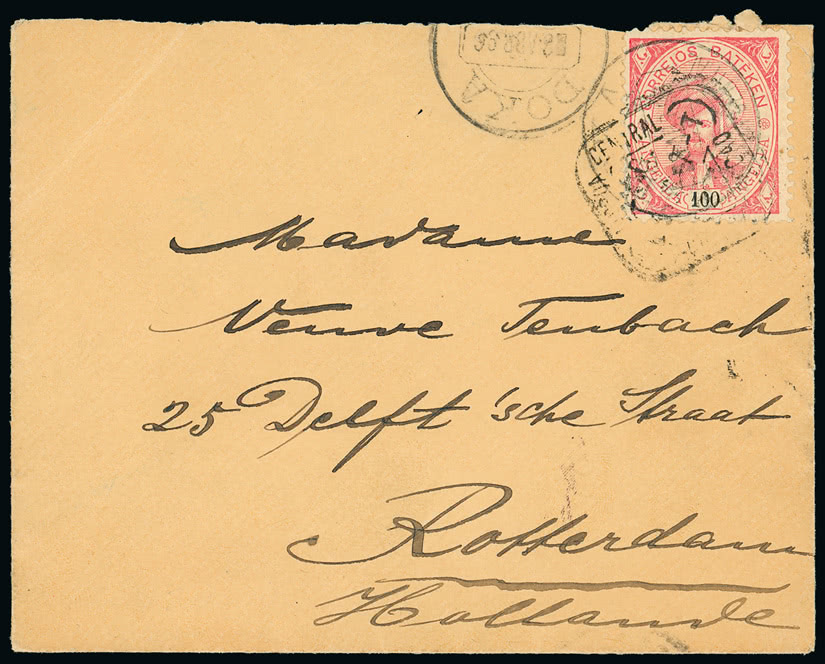 CORREIOS BATEKEN
100
CENTRAL
DOKA
Madame
Veuve Tenbach
25 Delft'sche Straat
Rotterdam
Hollande